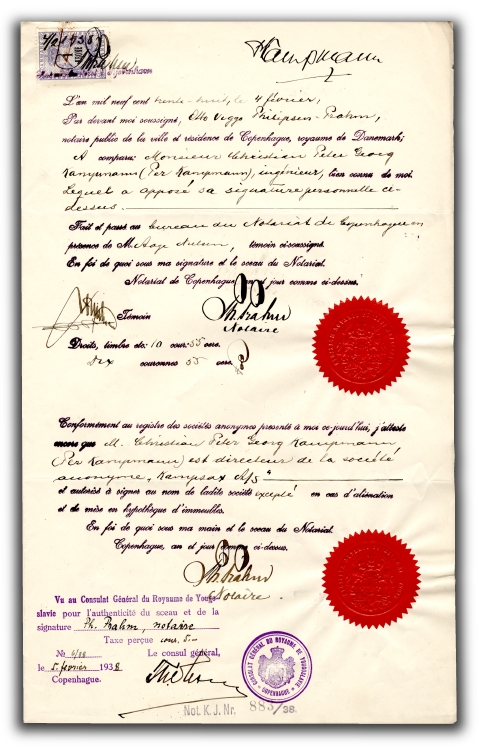 4/2 1938
Kampmann
L'an mil neuf cent trente-huit, le 4 février,
Par devant moi soussigné, Otto Viggo Philipsen-Prahm,
notaire public de la ville et résidence de Copenhague, royaume de Danemark;
A comparu: Monsieur Christian Peter Georg
Kampmann (Per Kampmann), ingénieur, bien connu de moi.
Lequel a apposé sa signature personnelle ci-
dessus.
Fait et passé au bureau du Notariat de Copenhague en
présence de M. Aage Nielsen, témoin ci-soussigné.
En foi de quoi sous ma signature et le sceau du Notariat.
Notariat de Copenhague, an et jour comme ci-dessus.
Témoin
Ph. Prahm
Notaire
Droits, timbre etc: 10 cour: 55 øre.
dix couronnes 55 øre
Conformément au registre des sociétés anonymes présenté à moi ce-jourd'hui, j'atteste
encore que M. Christian Peter Georg Kampmann
(Per Kampmann) est directeur de la société
anonyme, Kampsax A/S"
et autorisé à signer au nom de ladite société excepté en cas d'aliénation
et de mise en hypothèque d'immeubles.
En foi de quoi sous ma main et le sceau du Notariat.
Copenhague, an et jour comme ci-dessus.
Ph. Prahm
Notaire.
Vu au Consulat Général du Royaume de Yougo-
slavie pour l'authenticité du sceau et de la
signature Ph. Prahm, notaire
Taxe perçue cour. 5.—
№ 4/88 Le consul général,
le 5. fevrier 1938
Copenhague.
CONSULAT GÉNÉRAL DU ROYAUME DE YOUGOSLAVIE
COPENHAGUE
Not. K. J. Nr. 883/38.